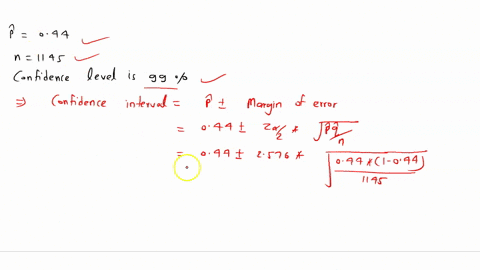 p̂ = 0.44
n = 1145
Confidence level is 99 %
⇒ Confidence interval = p̂ ± Margin of error
= 0.44 ± Zα/2 * √(p̂q̂/n)
= 0.44 ± 2.576 * √(0.44*(1-0.44)/1145)